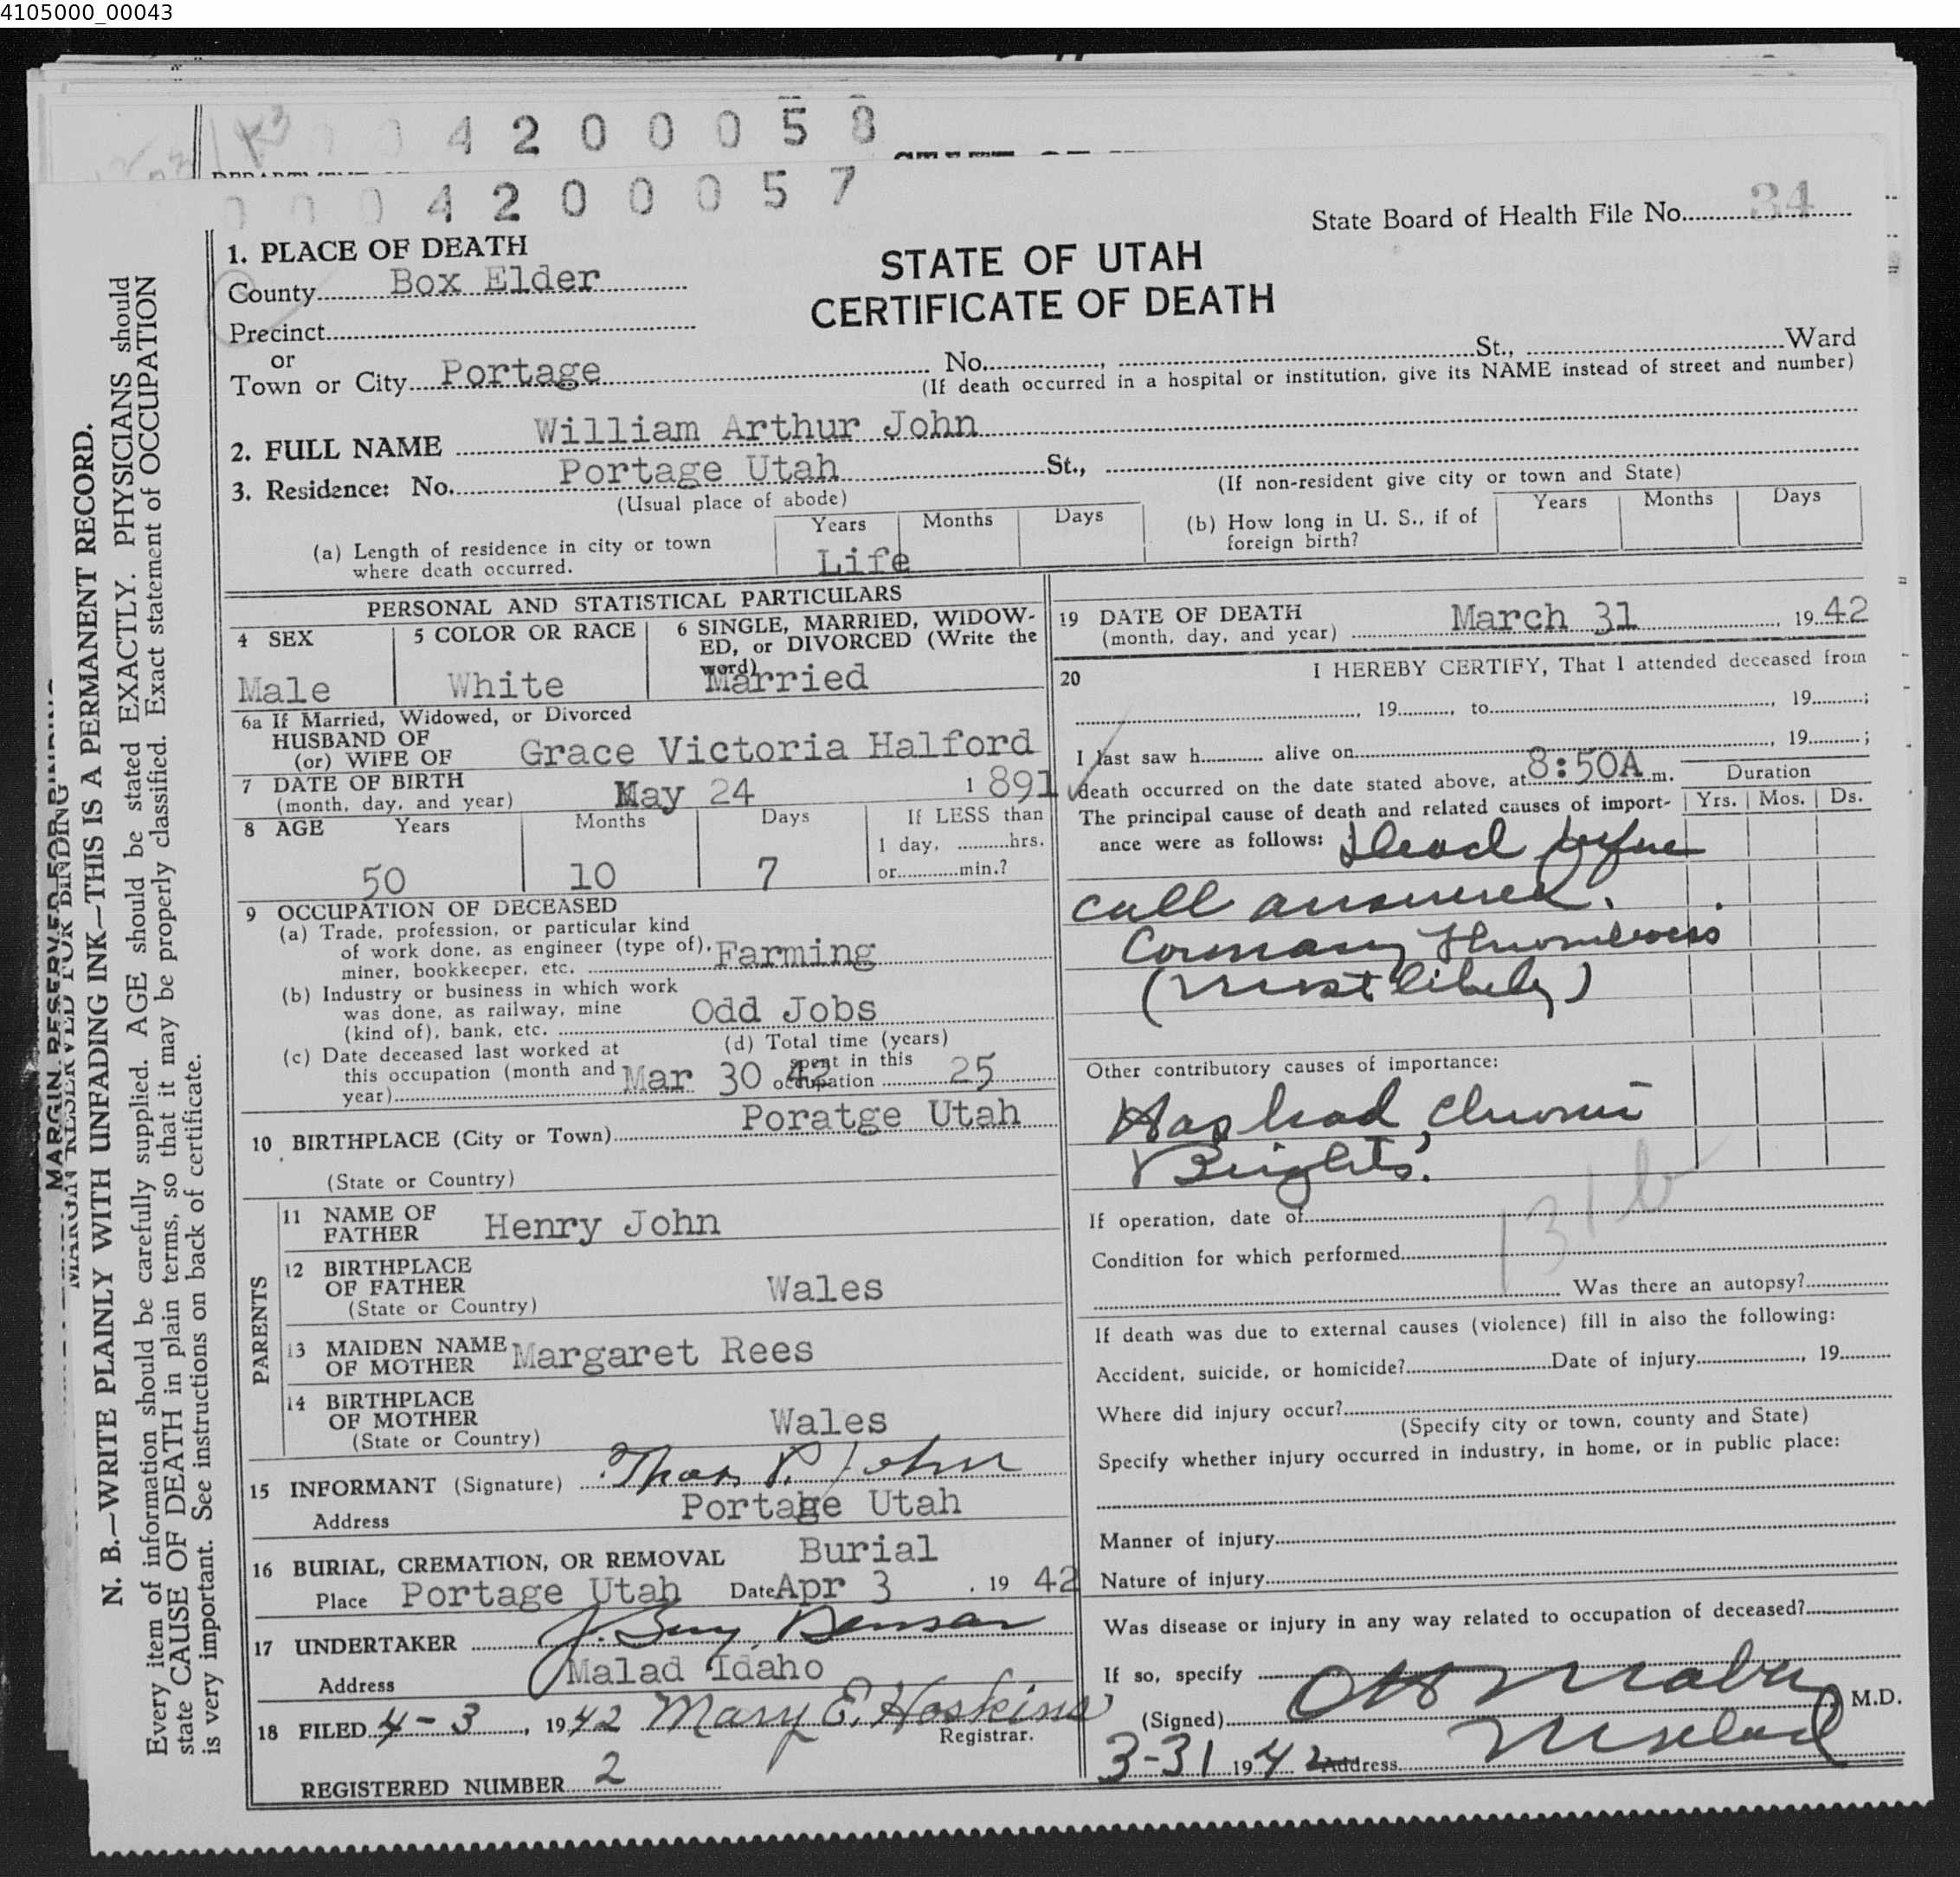 4105000_00043
0 0 4 2 0 0 0 5 8
0 0 0 4 2 0 0 0 5 7
State Board of Health File No. 34
1. PLACE OF DEATH
STATE OF UTAH
CERTIFICATE OF DEATH
County Box Elder
Precinct
or
Town or City Portage No. , St., Ward
(If death occurred in a hospital or institution, give its NAME instead of street and number)
2. FULL NAME William Arthur John
3. Residence: No. Portage Utah St.,
(Usual place of abode) (If non-resident give city or town and State)
(a) Length of residence in city or town where death occurred. Years Life Months Days
(b) How long in U. S., if of foreign birth? Years Months Days
PERSONAL AND STATISTICAL PARTICULARS
4 SEX
Male
5 COLOR OR RACE
White
6 SINGLE, MARRIED, WIDOW-
ED, or DIVORCED (Write the
word)
Married
6a If Married, Widowed, or Divorced
HUSBAND OF
(or) WIFE OF Grace Victoria Halford
7 DATE OF BIRTH
(month, day, and year) May 24 1 891
8 AGE Years Months Days If LESS than
1 day, hrs.
50 10 7 or min.?
9 OCCUPATION OF DECEASED
(a) Trade, profession, or particular kind
of work done, as engineer (type of),
miner, bookkeeper, etc. Farming
(b) Industry or business in which work
was done, as railway, mine
(kind of), bank, etc. Odd Jobs
(c) Date deceased last worked at
this occupation (month and
year) Mar 30 42
(d) Total time (years)
spent in this
occupation 25
10 BIRTHPLACE (City or Town) Poratge Utah
(State or Country)
PARENTS
11 NAME OF
FATHER Henry John
12 BIRTHPLACE
OF FATHER
(State or Country) Wales
13 MAIDEN NAME
OF MOTHER Margaret Rees
14 BIRTHPLACE
OF MOTHER
(State or Country) Wales
15 INFORMANT (Signature) Thos P. John
Address Portage Utah
16 BURIAL, CREMATION, OR REMOVAL Burial
Place Portage Utah Date Apr 3 , 19 42
17 UNDERTAKER J. Benson
Address Malad Idaho
18 FILED 4-3 , 1942 Mary E. Hoskins
Registrar.
REGISTERED NUMBER 2
19 DATE OF DEATH
(month, day, and year) March 31 , 19 42
20 I HEREBY CERTIFY, That I attended deceased from
, 19 , to , 19 ;
I last saw h alive on , 19 ;
death occurred on the date stated above, at 8:50A m.
The principal cause of death and related causes of import-
ance were as follows: Dead before
Duration
Yrs. Mos. Ds.
call answered.
Coronary Thrombosis
(most likely)
Other contributory causes of importance:
Has had chronic
Brights.
131b
If operation, date of
Condition for which performed
Was there an autopsy?
If death was due to external causes (violence) fill in also the following:
Accident, suicide, or homicide? Date of injury , 19
Where did injury occur?
(Specify city or town, county and State)
Specify whether injury occurred in industry, in home, or in public place:
Manner of injury
Nature of injury
Was disease or injury in any way related to occupation of deceased?
If so, specify
(Signed) O H Mabey , M.D.
3-31 1942 Address Malad
MARGIN RESERVED FOR BINDING
N. B.—WRITE PLAINLY WITH UNFADING INK—THIS IS A PERMANENT RECORD.
Every item of information should be carefully supplied. AGE should be stated EXACTLY. PHYSICIANS should
state CAUSE OF DEATH in plain terms, so that it may be properly classified. Exact statement of OCCUPATION
is very important. See instructions on back of certificate.